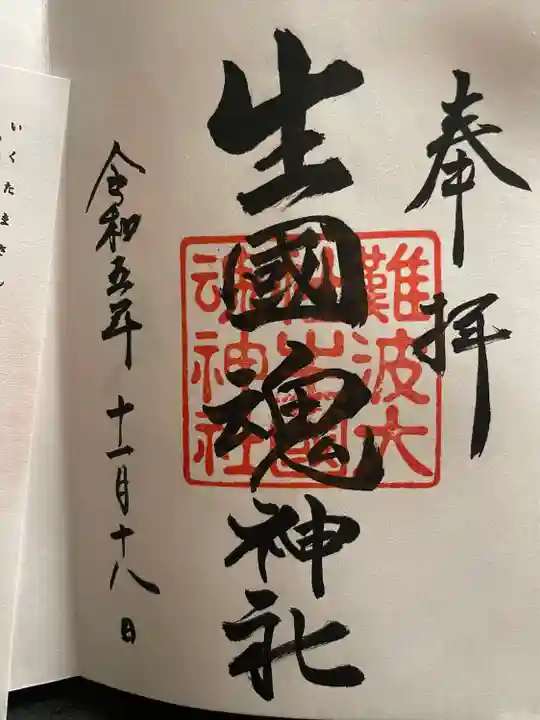 奉拝
生國魂神社
難波大
社生國
魂神社
令和五年十一月十八日
いくたまさん